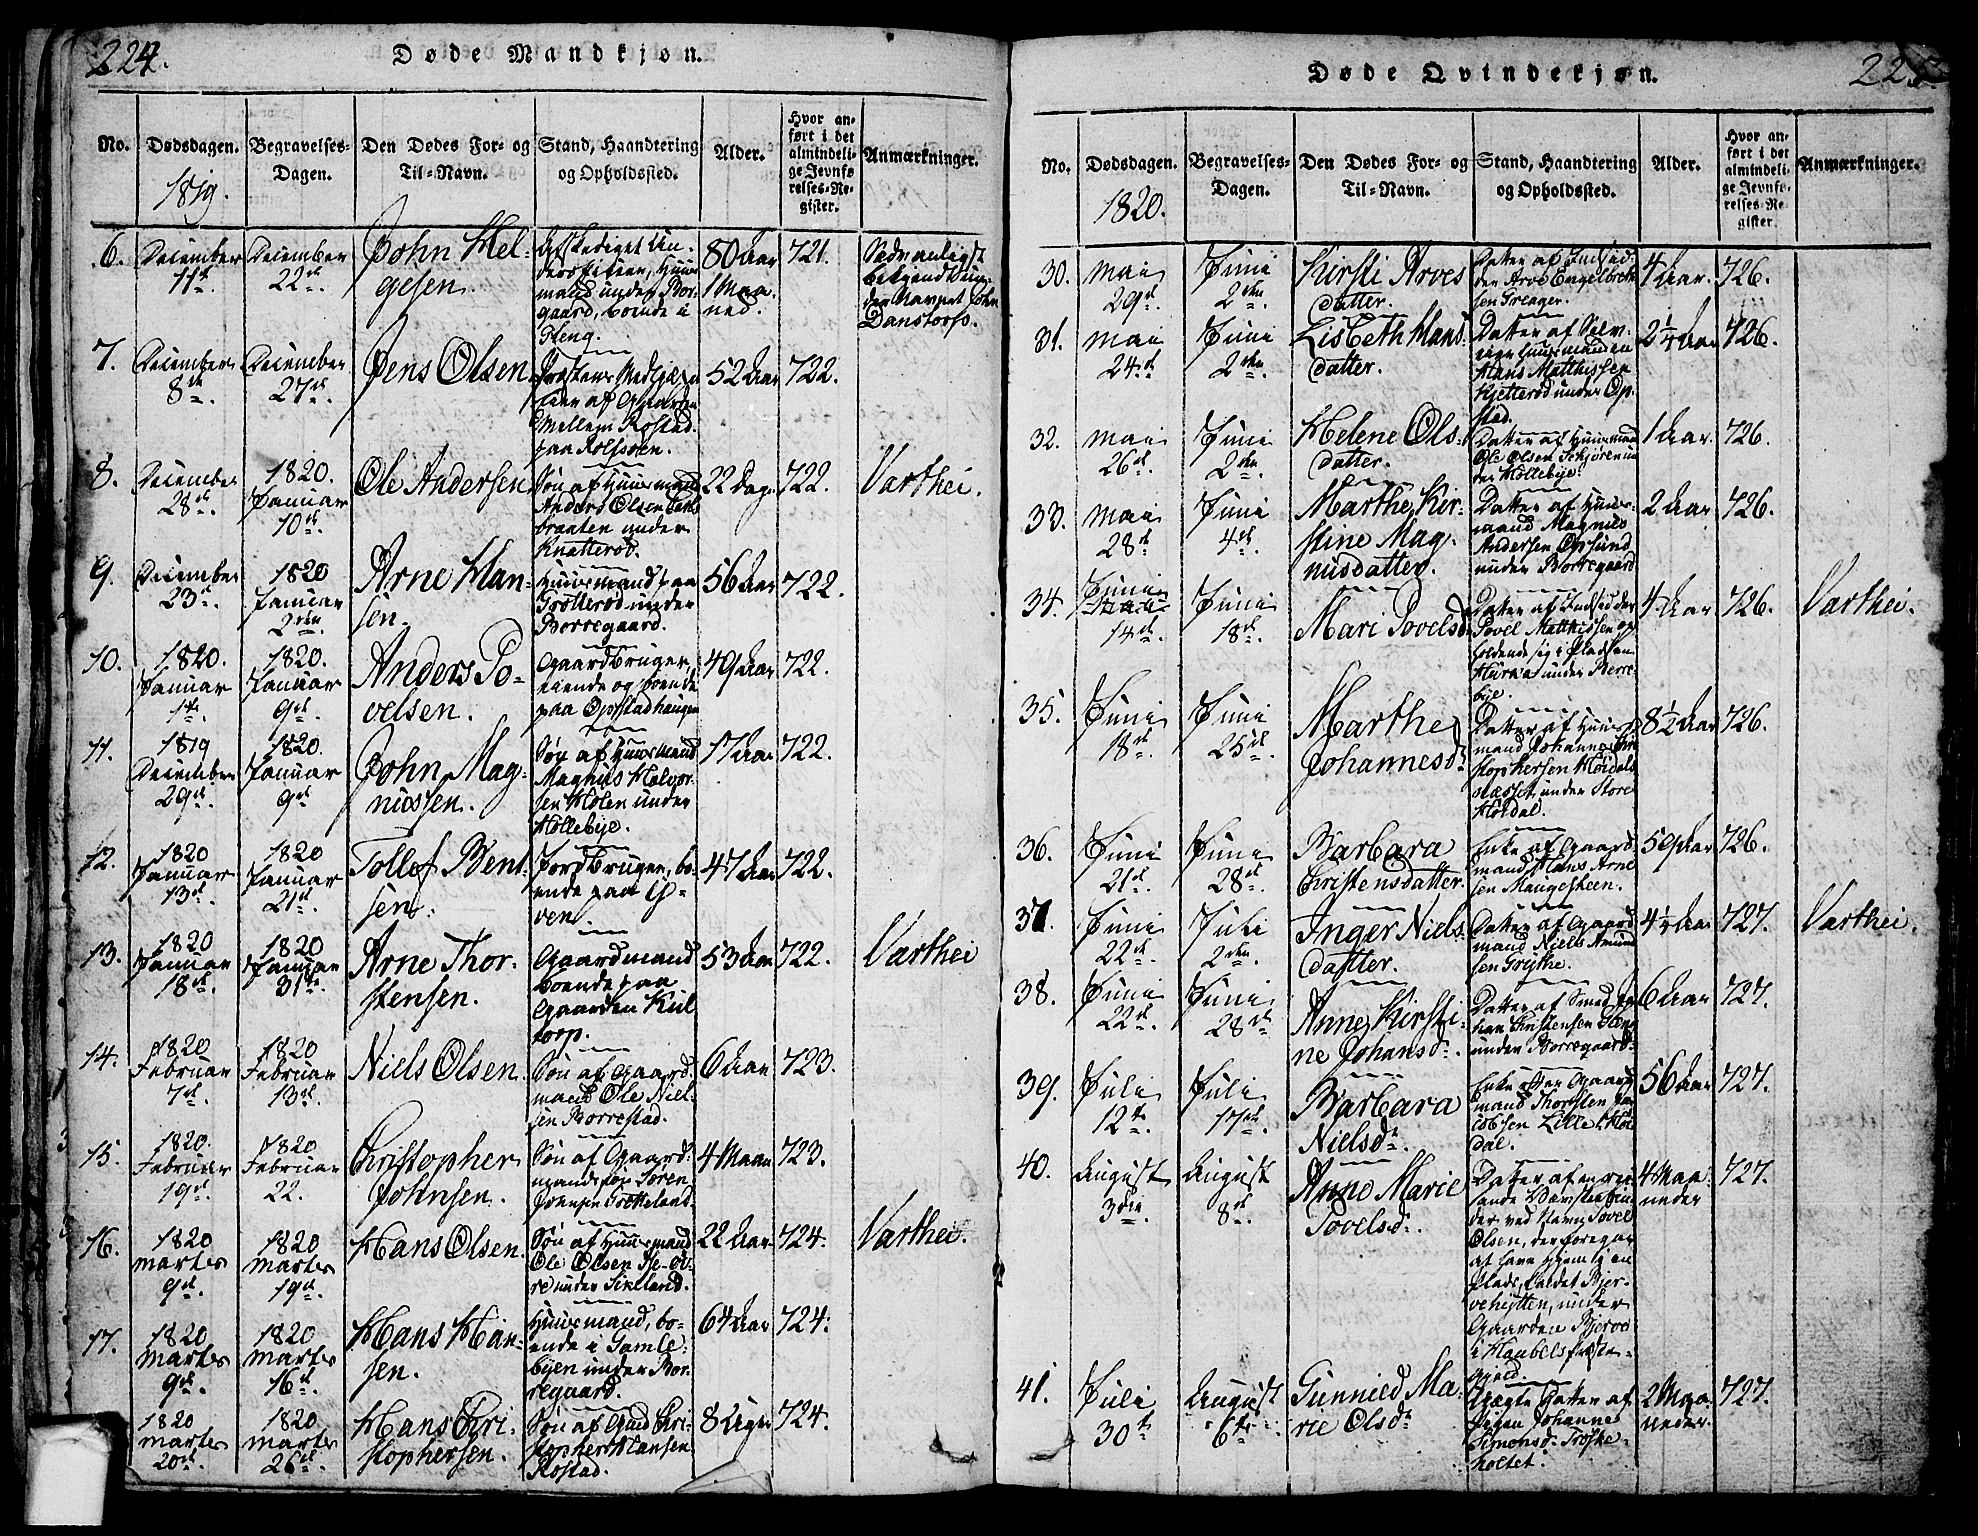 224.
Døde Mandkjøn.
No.
Dødsdagen.
1819.
Begravelses-
Dagen.
Den Dødes For- og
Til-Navn.
Stand, Haandtering
og Opholdssted.
Alder.
Hvor an-
ført i det
almindeli-
ge Jevnfø-
relses-Re-
gister.
Anmærkninger.
6.
December
11te.
December
22de.
John Hel-
gesen.
mand under Bor-
gaard, boende i
80 Aar
1 Maa-
ned.
721.
Sædvanligst
Danstorp.
7.
December
8de.
December
27de.
Jens Olsen
Mellem Rostad
paa Rolfsøen.
52 Aar
722.
8.
December
28de.
1820.
Januar
10de.
Ole Andersen
Søn af Huusmand
Anders Olsen
braaten under
Knatterød.
22 Dage
722.
Varthei.
9.
December
23de.
1820
Januar
2den
Arne Han-
sen.
Huusmand paa
Trøtterød under
Borregaard.
56 Aar
722.
10.
1820.
Januar
1te.
1820.
Januar
9de.
Anders Po-
velsen.
Gaardbruger,
eiende og boende
paa Opstadhaugen
49 Aar
722.
11.
1819
December
29de.
1820.
Januar
9de.
John Mag-
nussen.
Søn af Huusmand
Magnus Halvor-
sen Holen under
Hollebye.
17 Aar
722.
12.
1820
Januar
13de.
1820
Januar
21de.
Tollef Bent-
sen.
Jordbruger, bo-
ende paa G-
ven.
47 Aar
722.
13.
1820
Januar
18de.
1820
Januar
31te.
Arne Thor-
stensen.
Gaardmand
boende paa
Gaarden Kiil-
torp.
53 Aar
722.
Varthei
14.
1820
Februar
7de.
1820
Februar
13de.
Niels Olsen.
Søn af Gaard-
mand Ole Niel-
sen Borrestad.
6 Aar
723.
15.
1820.
Februar
19de.
1820
Februar
22.
Christopher
Johnsen.
Søn af Gaard-
4 Maan
723.
16.
1820
Martes
9de.
1820
Martes
19de.
Hans Olsen.
Søn af Huusmand
Ole Olsen
re under Sikkeland.
22 Aar
724.
Varthei.
17.
1820
Martes
9de.
1820
Martes
16de.
Hans Han-
sen.
Huusmand, bo-
ende i Gamle-
byen under Bor-
regaard.
64 Aar
724.
1820
Martes
20de.
1820
Martes
26de.
Hans Chri-
stophersen.
Søn af Gmd Chri-
stopher Hansen
Rostad.
8 Uger
724.
225.
Døde Qvindekjøn.
No.
Dødsdagen.
1820.
Begravelses-
Dagen.
Den Dødes For- og
Til-Navn.
Stand, Haandtering
og Opholdssted.
Alder.
Hvor an-
ført i det
almindeli-
ge Jevnfø-
relses-Re-
gister.
Anmærkninger.
30.
Mai
29de.
Juni
2den.
Kirsti Arves
datter.
Datter af Indsid-
der Arve Engelbreth-
sen Greager.
4 Aar.
726.
31.
Mai
24de.
Juni
2den.
Lisbeth Hans-
datter.
Datter af Selv-
eier Huusmanden
Hans Matthissen
Kjetterød under Op-
stad.
2¼ Aar
726.
32.
Mai
26de.
Juni
2den.
Helene Ols-
datter.
Datter af Huusmand
Ole Olsen Schjøren un-
der Hollebye.
1 Aar.
726.
33.
Mai
28de.
Juni
4de.
Marthe Kir-
stine Mag-
nusdatter.
Datter af Huus-
mand Magnus
Andersen Opsund
under Borregaard
2 Aar
726.
34.
Juni
14de.
Juni
18de.
Mari Povelsd
Datter af Indsidder
Povel Matthissen op-
holdende sig i Pladsen
under Borre-
bye.
4 Aar
726.
Varthei.
35.
Juni
18de.
Juni
25de.
Marthe
Johannesdr
Datter af Huus-
mand Johannes Chri-
stophersen Høidals
pladset under Store
Høidal.
8½ Aar
726.
36.
Juni
21de.
Juni
28de.
Barbara
Christensdatter.
Enke af Gaard-
mand Hans Arne-
sen Maugesteen.
59 Aar
726.
37.
Juni
22de.
Juli
2den.
Inger Niels-
datter.
Datter af Gaard-
mand Niels Amund-
sen Grythe.
4½ Aar
727.
Varthei.
38.
Juni
22de.
Juni
28de
Anne Kirsti-
ne Johansdr.
Datter af Smed Jo-
han Christensen Glen-
under Borregaard.
6 Aar
727.
39.
Juli
12te.
Juli
17de.
Barbara
Nielsdr.
Enke efter Gaard-
mand Thorsten Ja-
cobsen Lille Høi-
dal.
56 Aar
727.
40.
August
3die.
August
8de.
Anne Marie
Povelsdr.
Datter af en rei-
sende
der ved Navn Povel
Olsen, der foregav
at have Hjem i en
Plads, kaldet Bjer-
vehytten, under
Gaarden Bjerve
i Haabels Præste-
gjeld.
4 Maa-
neder
727.
41.
Juli
30te.
August
6te
Gunnild Ma-
rie Olsdr
Uægte Datter af
Pigen Johanne
Simonsdr Troske-
holtet.
2 Maa-
neder.
727.